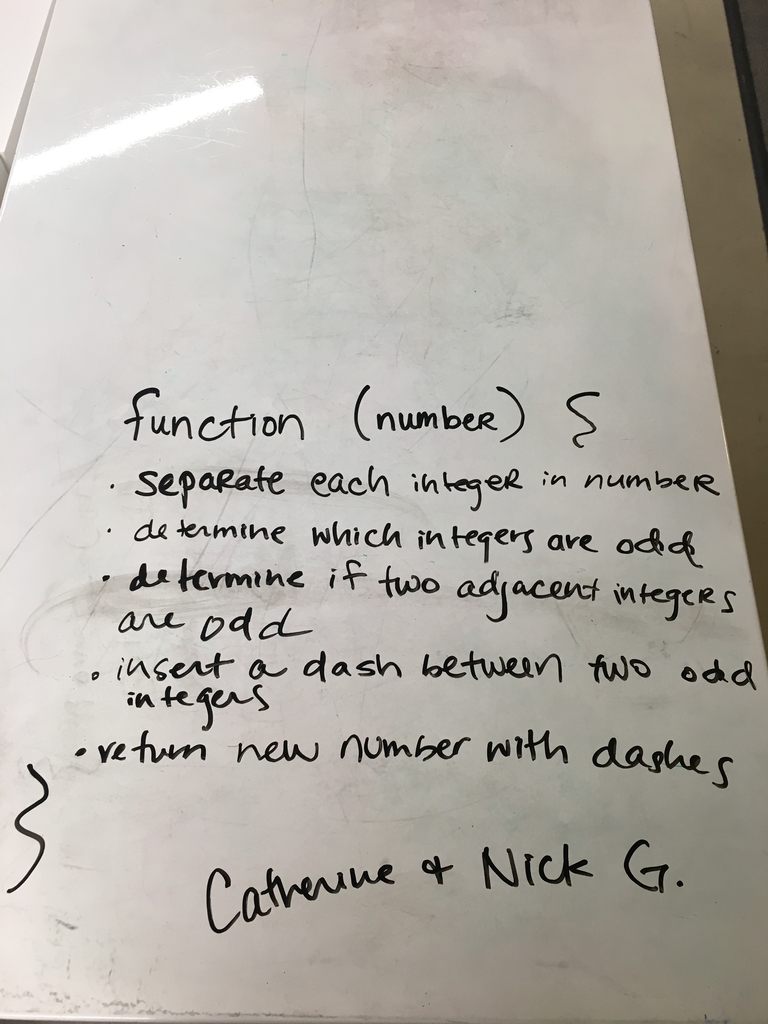 function (number) {
· separate each integer in number
· determine which integers are odd
· determine if two adjacent integers
are odd
· insert a dash between two odd
integers
· return new number with dashes
}
Catherine & Nick G.